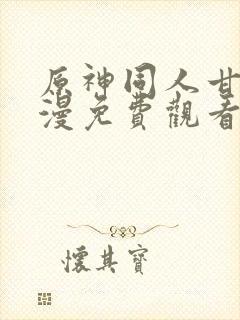 原神同人甘
漫免費觀看
懷其寶